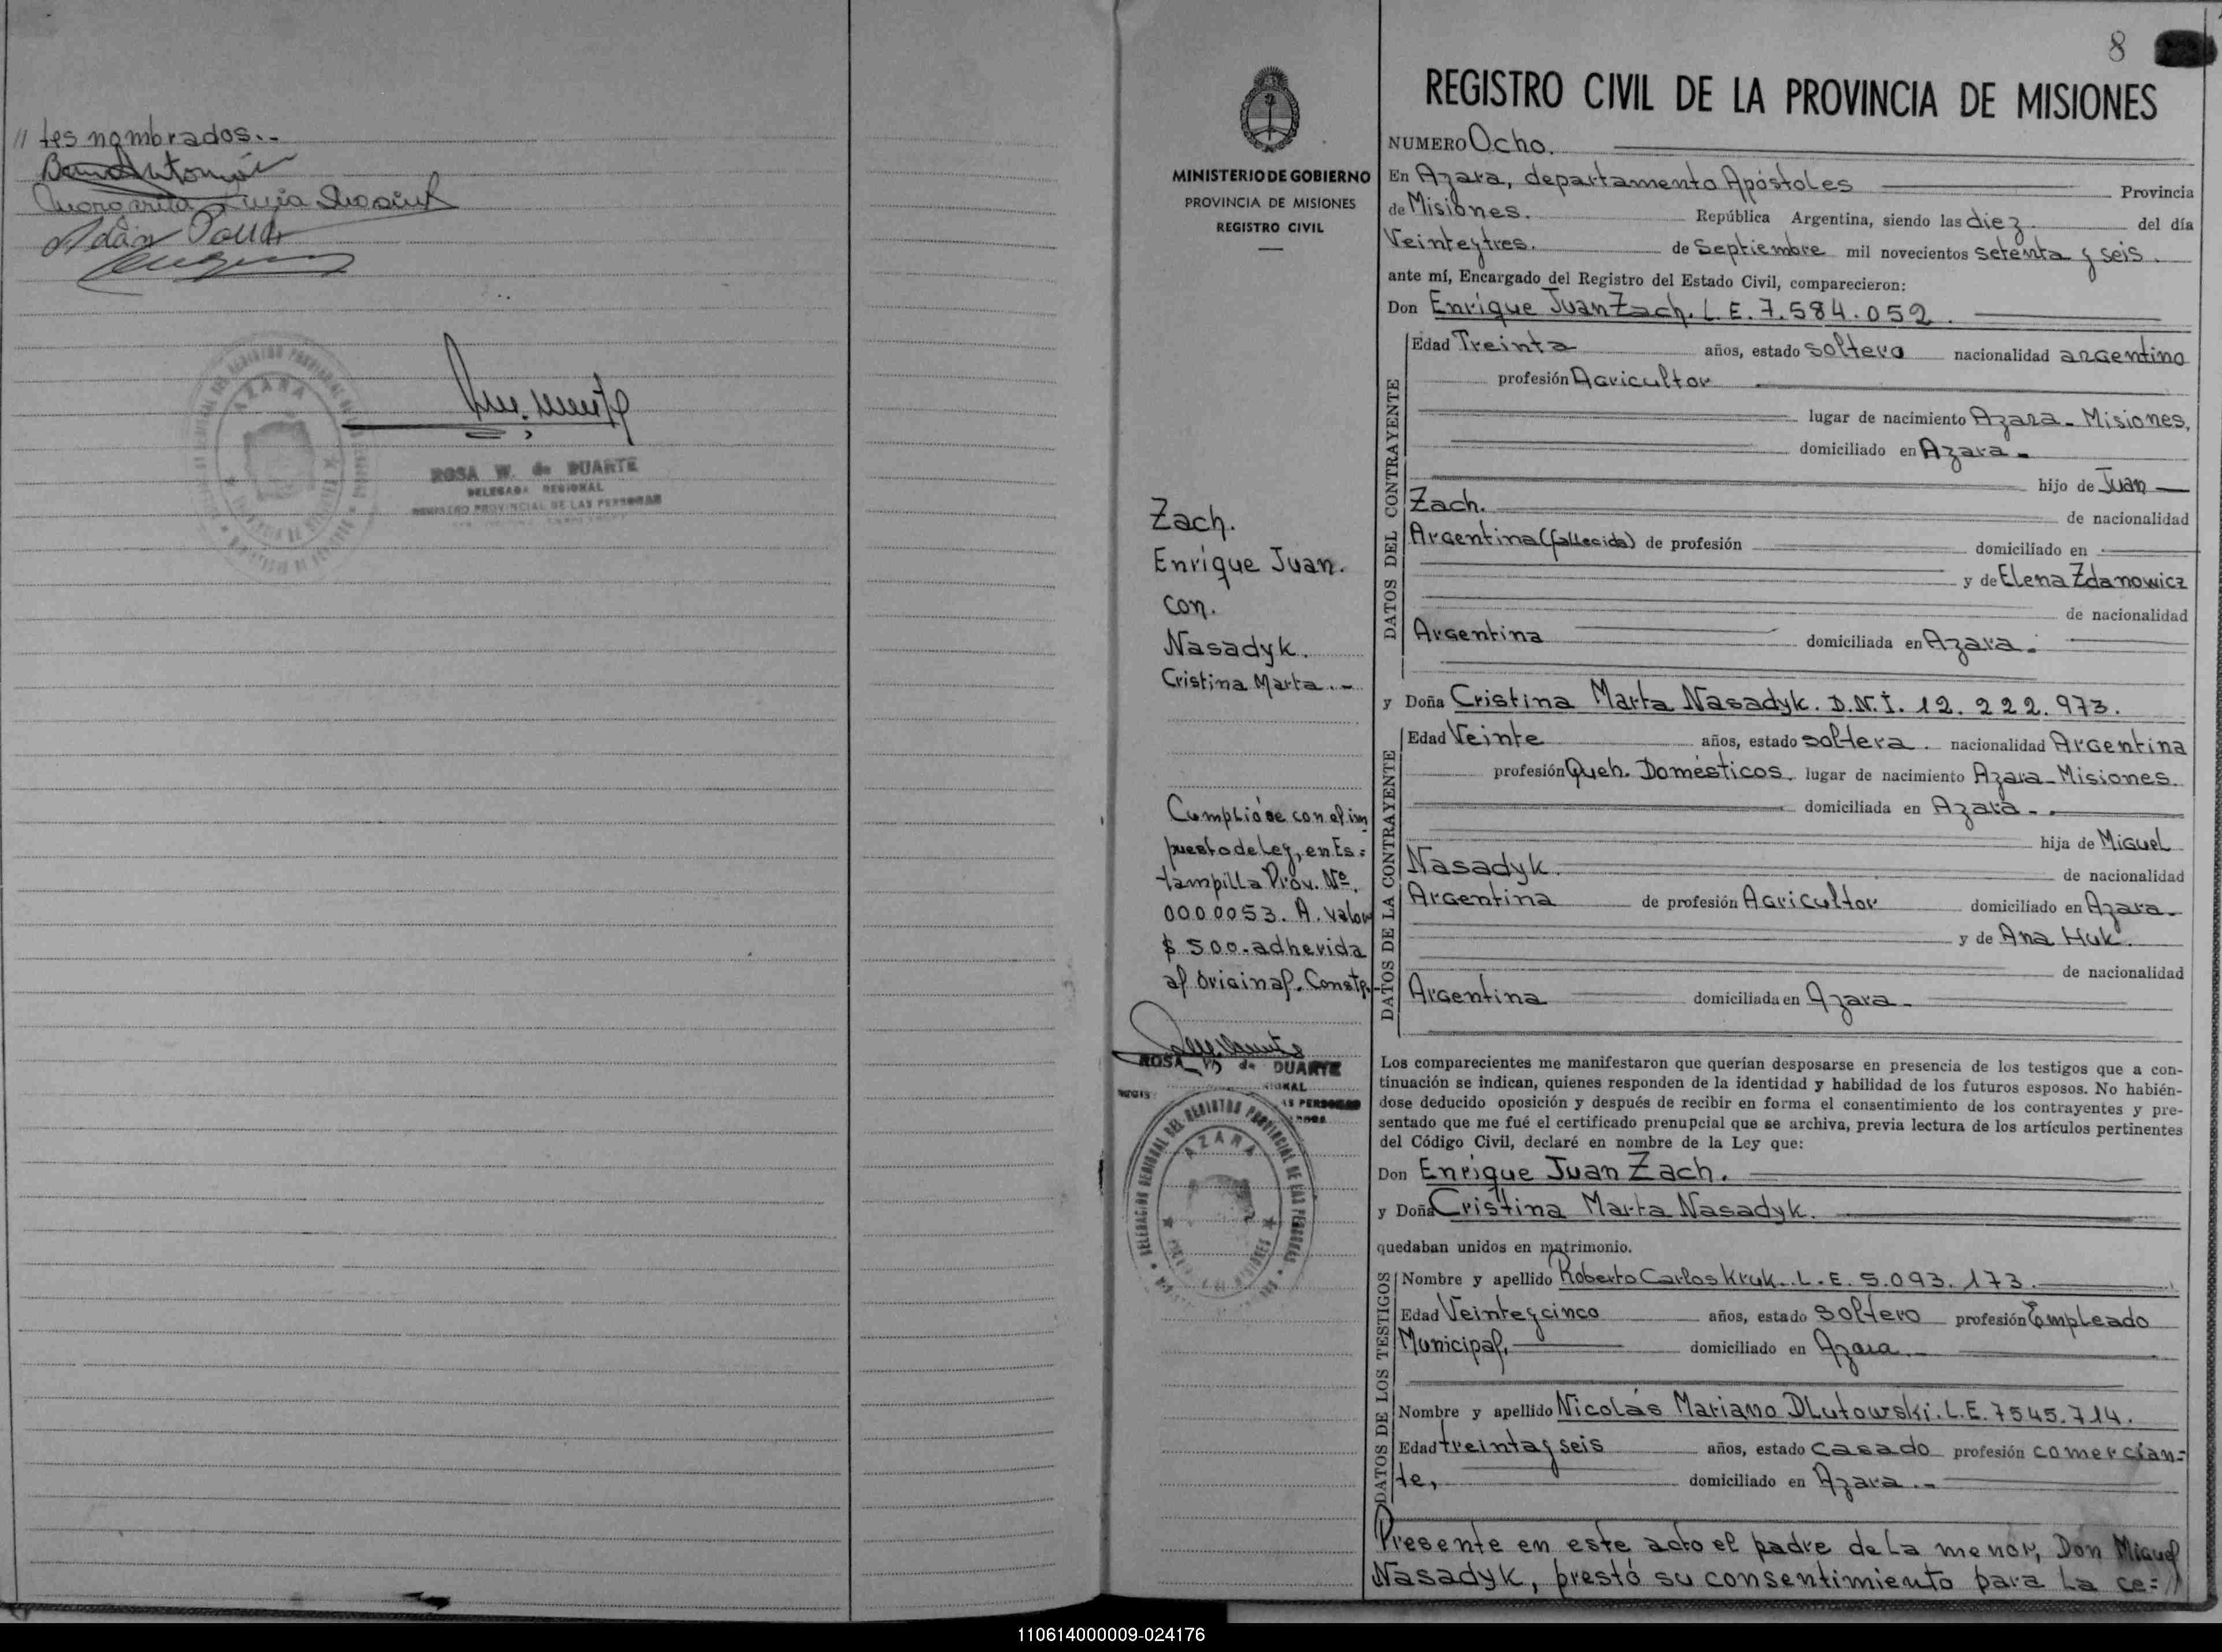 // tes nombrados.-
Adán
AZARA
ROSA W. de DUARTE
DELEGADA REGIONAL
REGISTRO PROVINCIAL DE LAS PERSONAS
MINISTERIO DE GOBIERNO
PROVINCIA DE MISIONES
REGISTRO CIVIL
Zach.
Enrique Juan.
con.
Nasadyk.
Cristina Marta.-
Cumplióse con el im
puesto de Ley, en Es=
tampilla Prov. Nº
0000053. A. valor
$ 500.- adherida
al original. Conste.-
ROSA W. de DUARTE
DELEGACION REGIONAL DEL REGISTRO PROVINCIAL DE LAS PERSONAS
AZARA
8
REGISTRO CIVIL DE LA PROVINCIA DE MISIONES
NUMERO Ocho.
En Azara, departamento Apóstoles Provincia
de Misiones. República Argentina, siendo las diez. del día
Veinteytres. de Septiembre mil novecientos setenta y seis.
ante mí, Encargado del Registro del Estado Civil, comparecieron:
Don Enrique Juan Zach. L.E. 7.584.052.
DATOS DEL CONTRAYENTE
Edad Treinta años, estado soltero nacionalidad argentino
profesión Agricultor
lugar de nacimiento Azara - Misiones.
domiciliado en Azara.
hijo de Juan
Zach. de nacionalidad
Argentina (fallecido) de profesión domiciliado en
y de Elena Zdanowicz
de nacionalidad
Argentina domiciliada en Azara.
y Doña Cristina Marta Nasadyk. D.N.I. 12.222.973.
DATOS DE LA CONTRAYENTE
Edad Veinte años, estado soltera. nacionalidad Argentina
profesión Queh. Domésticos. lugar de nacimiento Azara - Misiones.
domiciliada en Azara.-
hija de Miguel
Nasadyk. de nacionalidad
Argentina de profesión Agricultor domiciliado en Azara.
y de Ana Huk.
de nacionalidad
Argentina domiciliada en Azara.
Los comparecientes me manifestaron que querían desposarse en presencia de los testigos que a con-
tinuación se indican, quienes responden de la identidad y habilidad de los futuros esposos. No habién-
dose deducido oposición y después de recibir en forma el consentimiento de los contrayentes y pre-
sentado que me fué el certificado prenupcial que se archiva, previa lectura de los artículos pertinentes
del Código Civil, declaré en nombre de la Ley que:
Don Enrique Juan Zach.
y Doña Cristina Marta Nasadyk.
quedaban unidos en matrimonio.
DATOS DE LOS TESTIGOS
Nombre y apellido Roberto Carlos Kruk. L.E. 5.093.173.
Edad Veinteycinco años, estado soltero profesión Empleado
Municipal. domiciliado en Azara
Nombre y apellido Nicolás Mariano DLutowski. L.E. 7545.714.
Edad treinta y seis años, estado casado profesión comercian=
te, domiciliado en Azara.-
Presente en este acto el padre de la menor, Don Miguel
Nasadyk, prestó su consentimiento para la ce= //
110614000009-024176